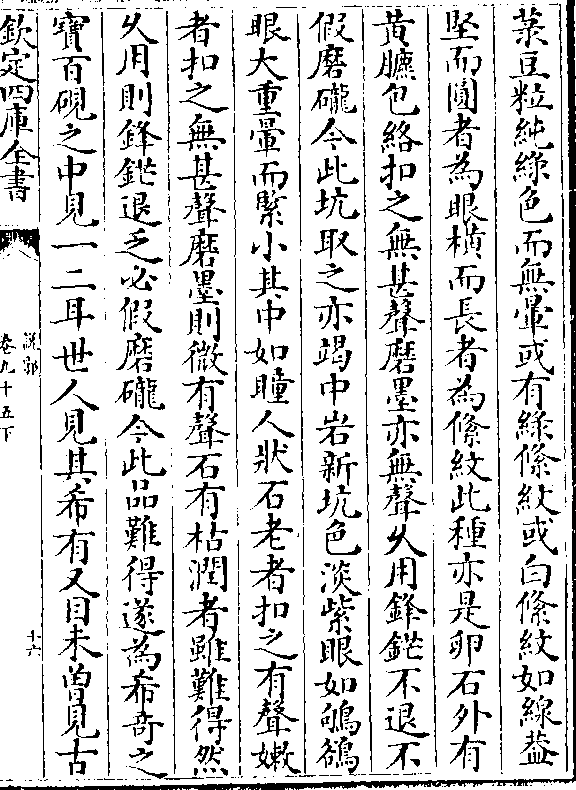 菉豆粒純綠色而無暈或有綠絛紋或白絛紋如線葢
堅而圓者為眼橫而長者為絛紋此種亦是卵石外有
黃臕包絡扣之無甚聲磨墨亦無聲乆用鋒鋩不退不
假磨礲今此坑取之亦竭中岩新坑色淡紫眼如鴝鵒
眼大重暈而緊小其中如瞳人狀石老者扣之有聲嫰
者扣之無甚聲磨墨則微有聲石有枯潤者雖難得然
乆用則鋒鋩退乏必假磨礲今此品難得遂為希奇之
寳百硯之中見一二耳世人見其希有又目未曾見古
欽定四庫全書
說郛
卷九十五下
十六